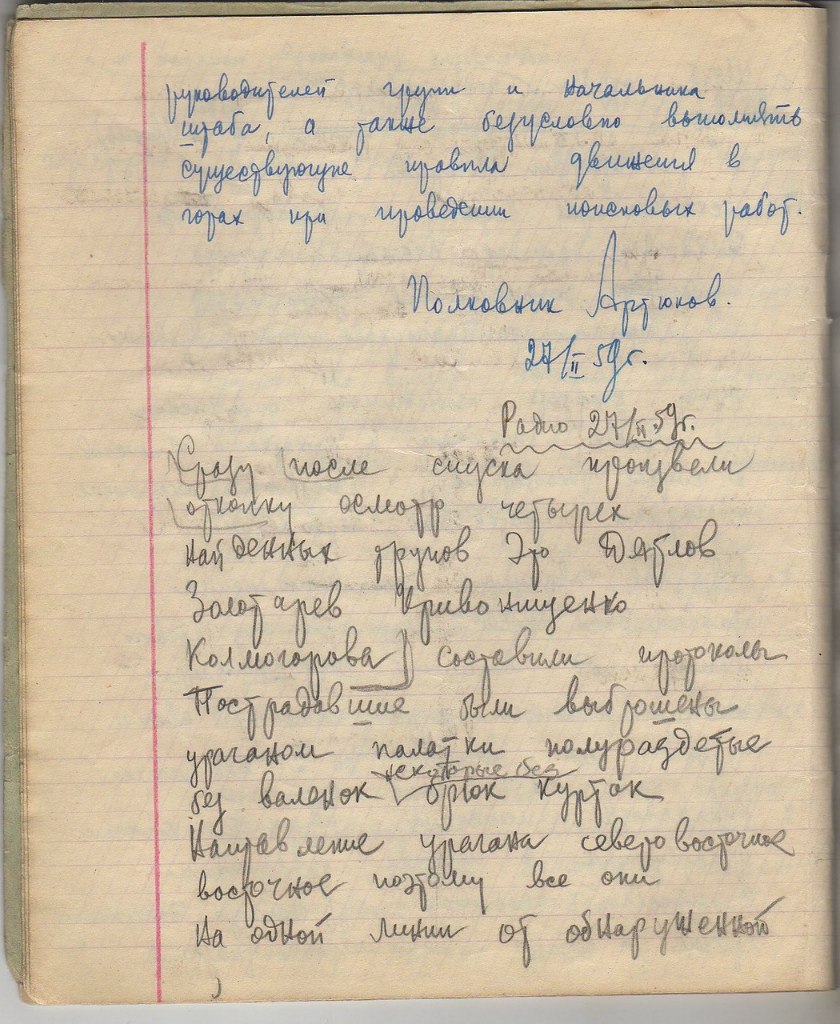 руководителей групп и начальника
штаба, а также безусловно выполнять
существующие правила движения в
горах при проведении поисковых работ.
Полковник Артюков.
27/II 59г.
Радио 27/II 59г.
Сразу после спуска произвели
откопку осмотр четырех
найденных трупов Это Дятлов
Золотарев Кривонищенко
Колмогорова составили протоколы
Пострадавшие были выброшены
ураганом палатки полураздетые
некоторые без
без валенок брюк курток
Направление урагана северо восточное
восточное поэтому все они
на одной линии от обнаруженной